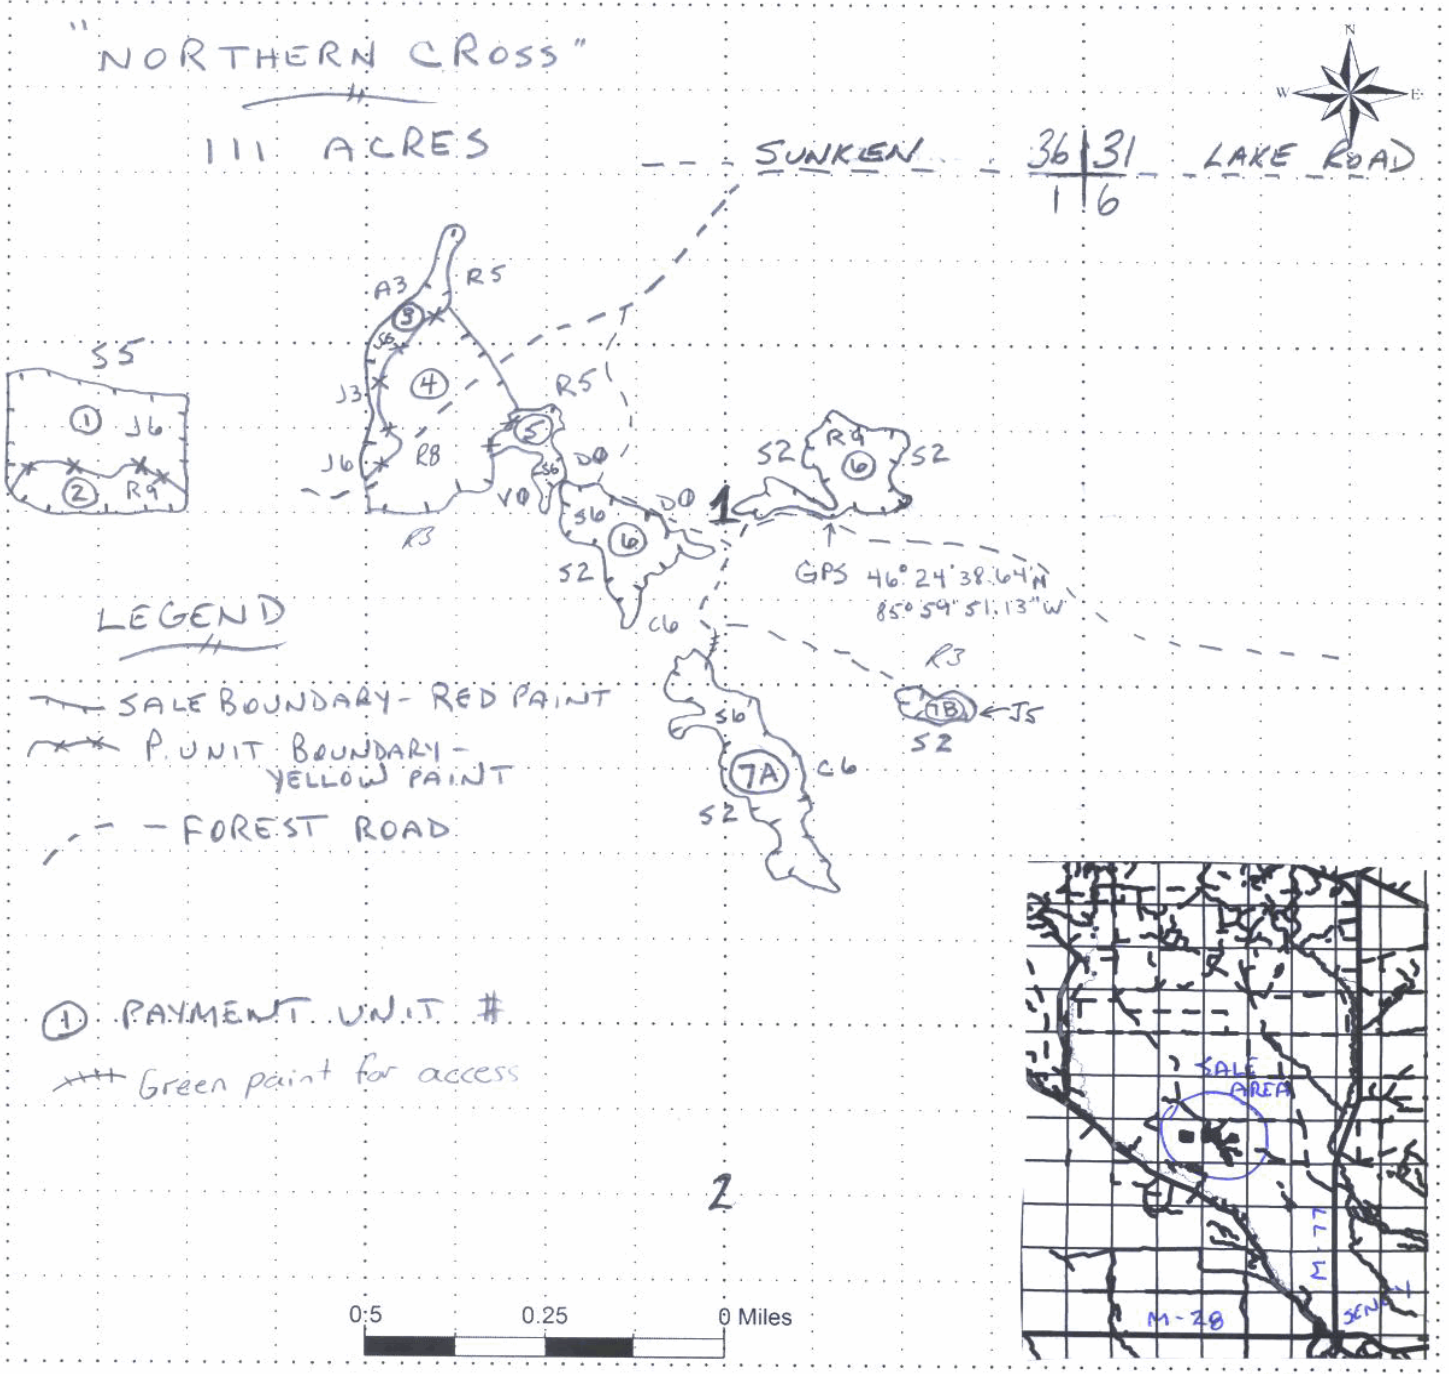 "NORTHERN CROSS"
111 ACRES
N
W E
SUNKEN 36 31 LAKE ROAD
1 6
A3 R5
3
J6
S5
J3 4 R5
1 J6
5
J6 R8 S6 D0
2 R9
V0
R3
S6 D0
6
S2
C6
1
S2 R9 S2
6
GPS 46° 24' 38.64"N
85° 59' 51.13"W
R3
7B ←J5
S2
S6
7A C6
S2
LEGEND
SALE BOUNDARY - RED PAINT
P. UNIT BOUNDARY -
YELLOW PAINT
- FOREST ROAD
1 PAYMENT UNIT #
Green paint for access
2
0.5 0.25 0 Miles
SALE
AREA
M-77
M-28
SENEY